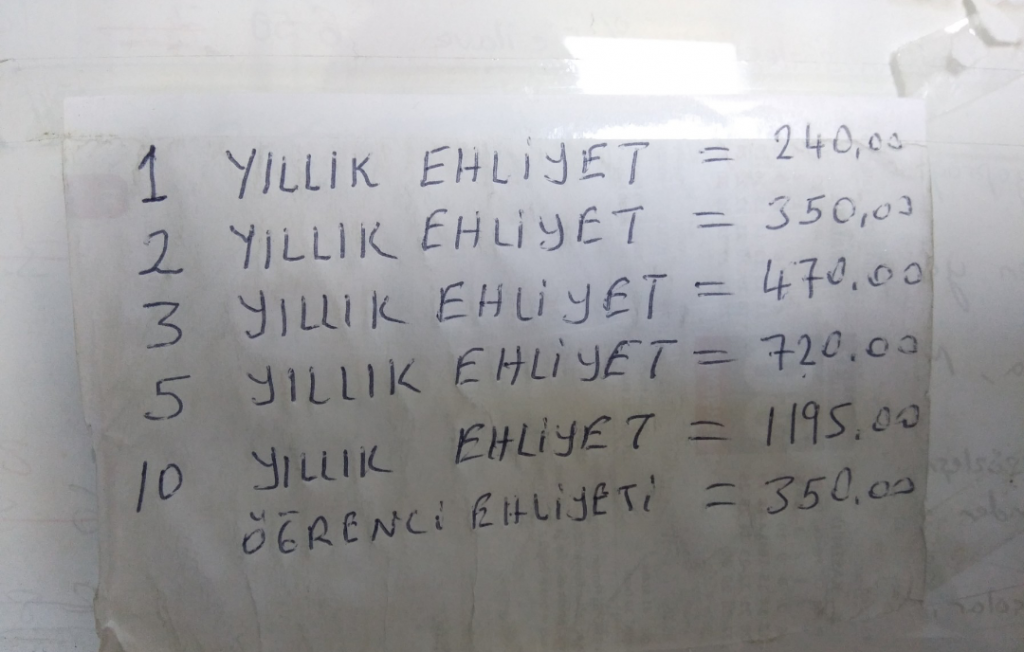 1 YILLIK EHLİYET = 240,00
2 YILLIK EHLİYET = 350,00
3 YILLIK EHLİYET = 470.00
5 YILLIK EHLİYET = 720.00
10 YILLIK EHLİYET = 1195.00
ÖĞRENCİ EHLİYETİ = 350.00